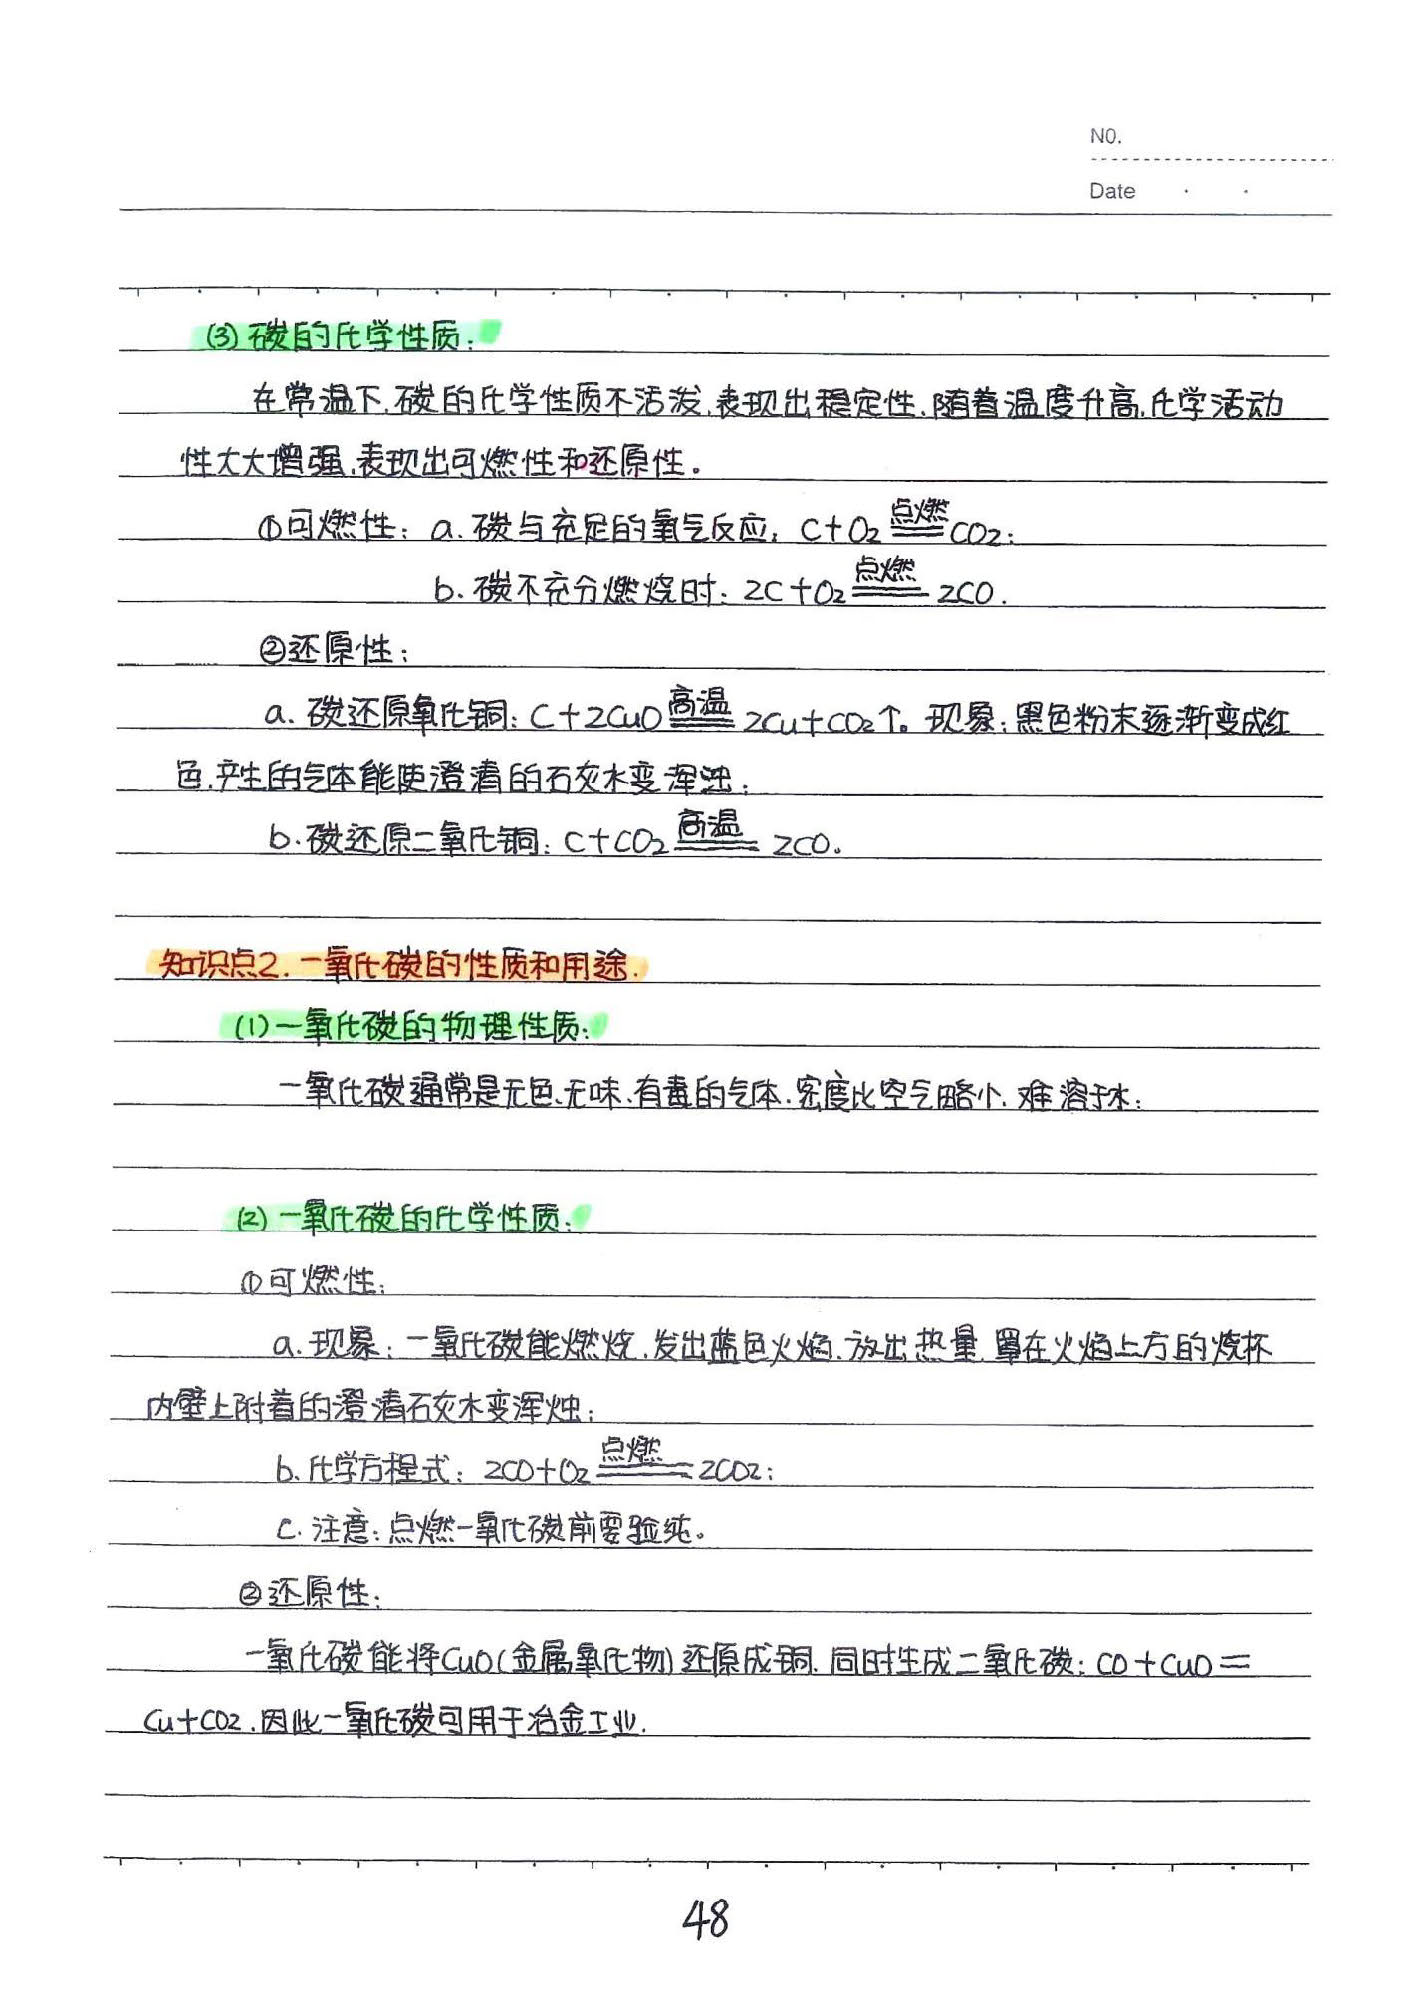 NO.
Date
(3) 碳的化学性质:
在常温下,碳的化学性质不活泼,表现出稳定性,随着温度升高,化学活动
性大大增强,表现出可燃性和还原性。
①可燃性: a. 碳与充足的氧气反应: C+O₂ 点燃 CO₂;
b. 碳不充分燃烧时: 2C+O₂ 点燃 2CO.
②还原性:
a. 碳还原氧化铜: C+2CuO 高温 2Cu+CO₂↑。现象:黑色粉末逐渐变成红
色,产生的气体能使澄清的石灰水变浑浊;
b. 碳还原二氧化铜: C+CO₂ 高温 2CO。
知识点2. 一氧化碳的性质和用途.
(1) 一氧化碳的物理性质:
一氧化碳通常是无色、无味、有毒的气体,密度比空气略小,难溶于水;
(2) 一氧化碳的化学性质:
①可燃性:
a. 现象: 一氧化碳能燃烧,发出蓝色火焰,放出热量,罩在火焰上方的烧杯
内壁上附着的澄清石灰水变浑烛;
b. 化学方程式: 2CO+O₂ 点燃 2CO2;
c. 注意:点燃一氧化碳前要验纯。
②还原性:
一氧化碳能将CuO(金属氧化物)还原成铜,同时生成二氧化碳: CO+CuO=
Cu+CO2,因此一氧化碳可用于冶金工业.
48